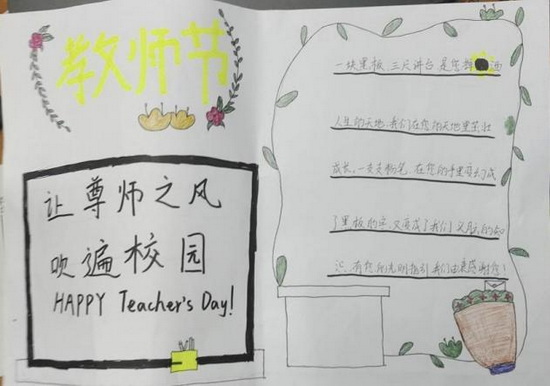 教师节
让尊师之风
吹遍校园
HAPPY Teacher's Day!
一块黑板,三尺讲台,是您挥洒
人生的天地,我们在您的天地里茁壮
成长,一支支粉笔,在您的手里变成
了黑板的字,又变成了我们的知
识,有您的光明指引,我们由衷感谢您!